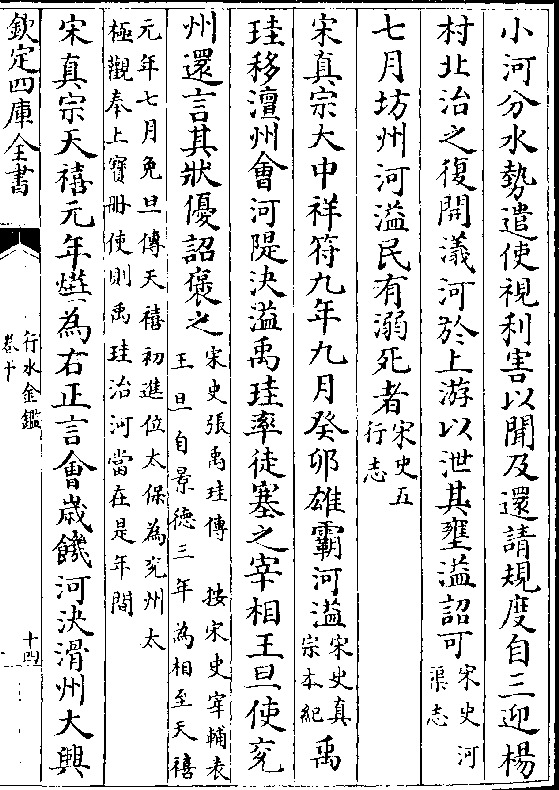 小河分水勢遣使視利害以聞及還請規度自三迎楊
村北治之復開減河於上游以泄其壅溢詔可宋史河
渠志
七月坊州河溢民有溺死者宋史五
行志
宋真宗大中祥符九年九月癸卯雄霸河溢宋史真
宗本紀禹
珪移澶州會河隄決溢禹珪率徒塞之宰相王旦使兗
州還言其狀優詔褒之宋史張禹珪傳 按宋史宰輔表
王旦自景德三年為相至天禧
元年七月免旦傳天禧初進位太保為兗州太
極觀奉上寶册使則禹珪治河當在是年間
宋真宗天禧元年爗為右正言會歲饑河決滑州大興
欽定四庫全書
行水金鑑
卷十
十四